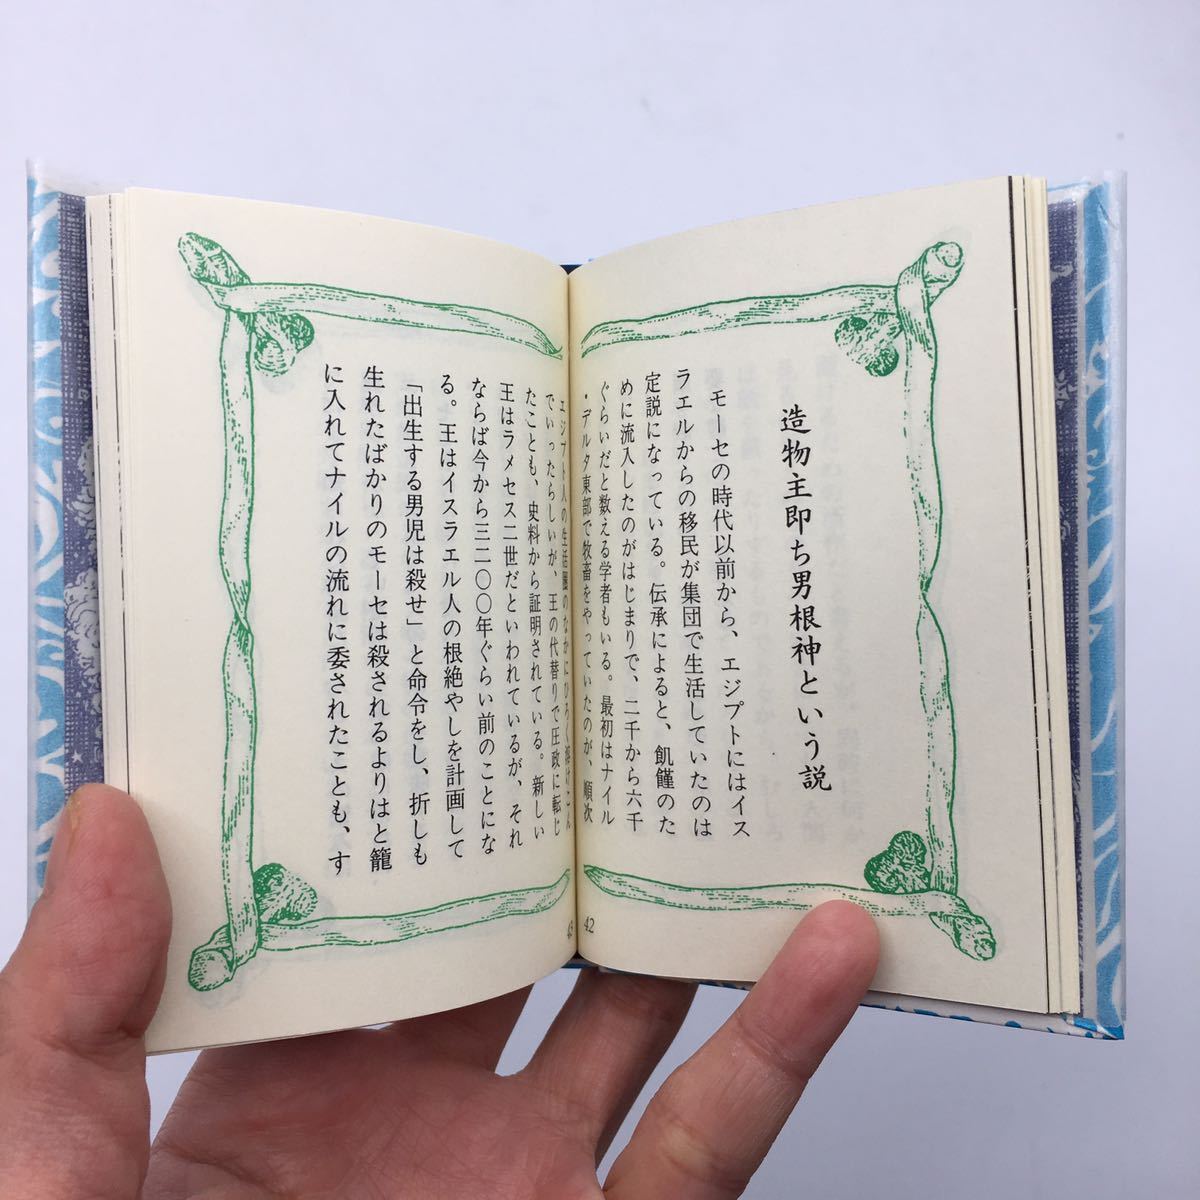 造物主即ち男根神という説
モーセの時代以前から、エジプトにはイス
ラエルからの移民が集団で生活していたのは
定説になっている。伝承によると、飢饉のた
めに流入したのがはじまりで、二千から六千
ぐらいだと数える学者もいる。最初はナイル
・デルタ東部で牧畜をやっていたのが、順次
42
エジプト人の生活圏のなかにひろく溶けこん
でいったらしいが、王の代替りで圧政に転じ
たことも、史料から証明されている。新しい
王はラメセス二世だといわれているが、それ
ならば今から三二〇〇年ぐらい前のことにな
る。王はイスラエル人の根絶やしを計画して
「出生する男児は殺せ」と命令をし、折しも
生れたばかりのモーセは殺されるよりはと籠
に入れてナイルの流れに委されたことも、す
43